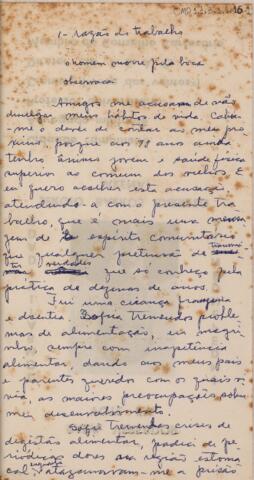 16
1- razão do trabalho
o homem morre pela boca
observação
Amigos me acusam de não
divulgar meus hábitos de vida. Cabe-
me o dever de contar ao meu pro
ximo porque aos 78 anos ainda
tenho ânimo jovem e saúde física
superior ao comum dos velhos. E
eu quero acolher esta acusação
atendendo-a com o presente tra
balho, que é mais uma mensa
gem de espirito comunitario
que qualquer pretensa de
que só conheço pela
pratica de dezenas de anos.
Fui uma criança franzina
e doentia. Sofria tremendos proble
mas de alimentação, era magri
nho, sempre com inapetência
alimentar, dando aos meus pais
e parentes queridos com os quais vi
via, as maiores preocupações sobre
meu desenvolvimento.
Sofri tremendas crises de
digestão alimentar, padeci de pe
riódicas dores na região estoma
cal, me a prisão